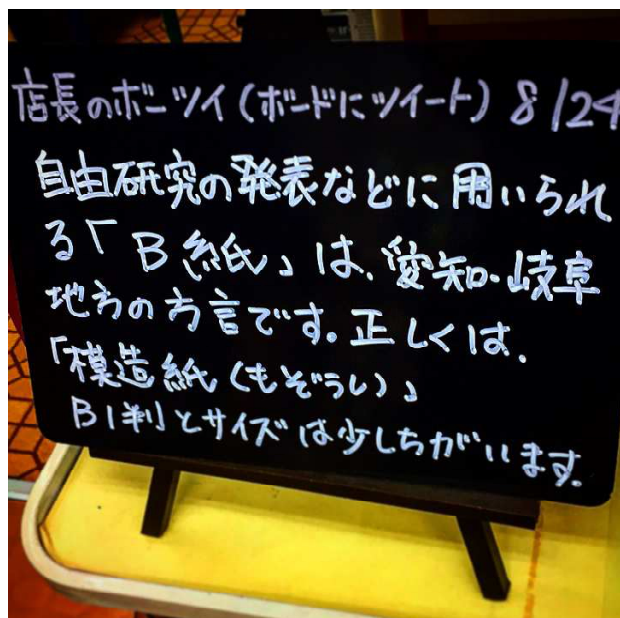 店長のボーツイ(ボードにツイート) 8/24
自由研究の発表などに用いられ
る「B紙」は、愛知・岐阜
地方の方言です。正しくは、
「模造紙(もぞうし)」
B1判とサイズは少しちがいます。